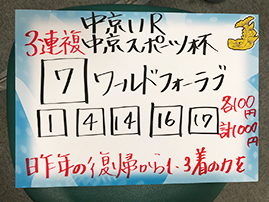 中京11R
3連複 中京スポーツ杯
7 ワールドフォーラブ
1 4 14 16 17
各100円
計1000円
昨年の復帰から1、3着の力を